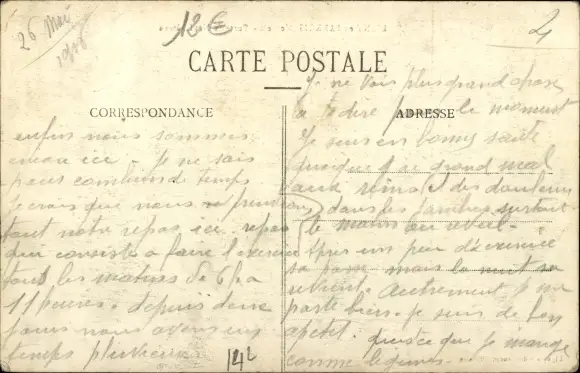 26 Mai
1916
12 €
2
CARTE POSTALE
CORRESPONDANCE
ADRESSE
enfin nous sommes
encore ici. Je ne sais
pour combien de temps
Je crois que nous prendrons
tout notre repos ici. repos
qui consiste a faire l'exercice
tous les matins de 6 h a
11 heures. depuis deux
jours nous avons un
temps pluvieux
142
Je ne vois plus grand chose
a te dire pour le moment
Je suis en bonne santé
quoique j'ai grand mal
aux reins et des douleurs
dans les jambes surtout
le matin au reveil.
Apres un peu d'exercice
sa passe mais la nuit sa
revient. Autrement je me
porte bien. Je suis de bon
apetit. Qu'est ce que je mange
comme legumes.